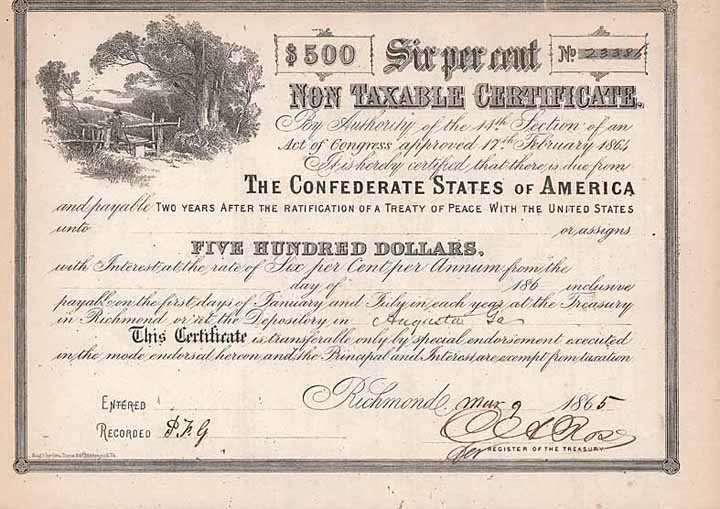 $500 Six per cent No 2338
NON TAXABLE CERTIFICATE.
By Authority of the 14th Section of an
Act of Congress approved 17th February 1864
It is hereby certified that there is due from
THE CONFEDERATE STATES OF AMERICA
and payable TWO YEARS AFTER THE RATIFICATION OF A TREATY OF PEACE WITH THE UNITED STATES
unto or assigns
FIVE HUNDRED DOLLARS,
with Interest at the rate of Six per Cent per Annum from the
day of 186 inclusive
payable on the first days of January and July in each year at the Treasury
in Richmond or at the Depository in Augusta Ga
This Certificate is transferable only by special endorsement executed
in the mode endorsed hereon and the Principal and Interest are exempt from taxation
Richmond Mar 9 1865
ENTERED
RECORDED P.F.G
C A Rose
for REGISTER OF THE TREASURY